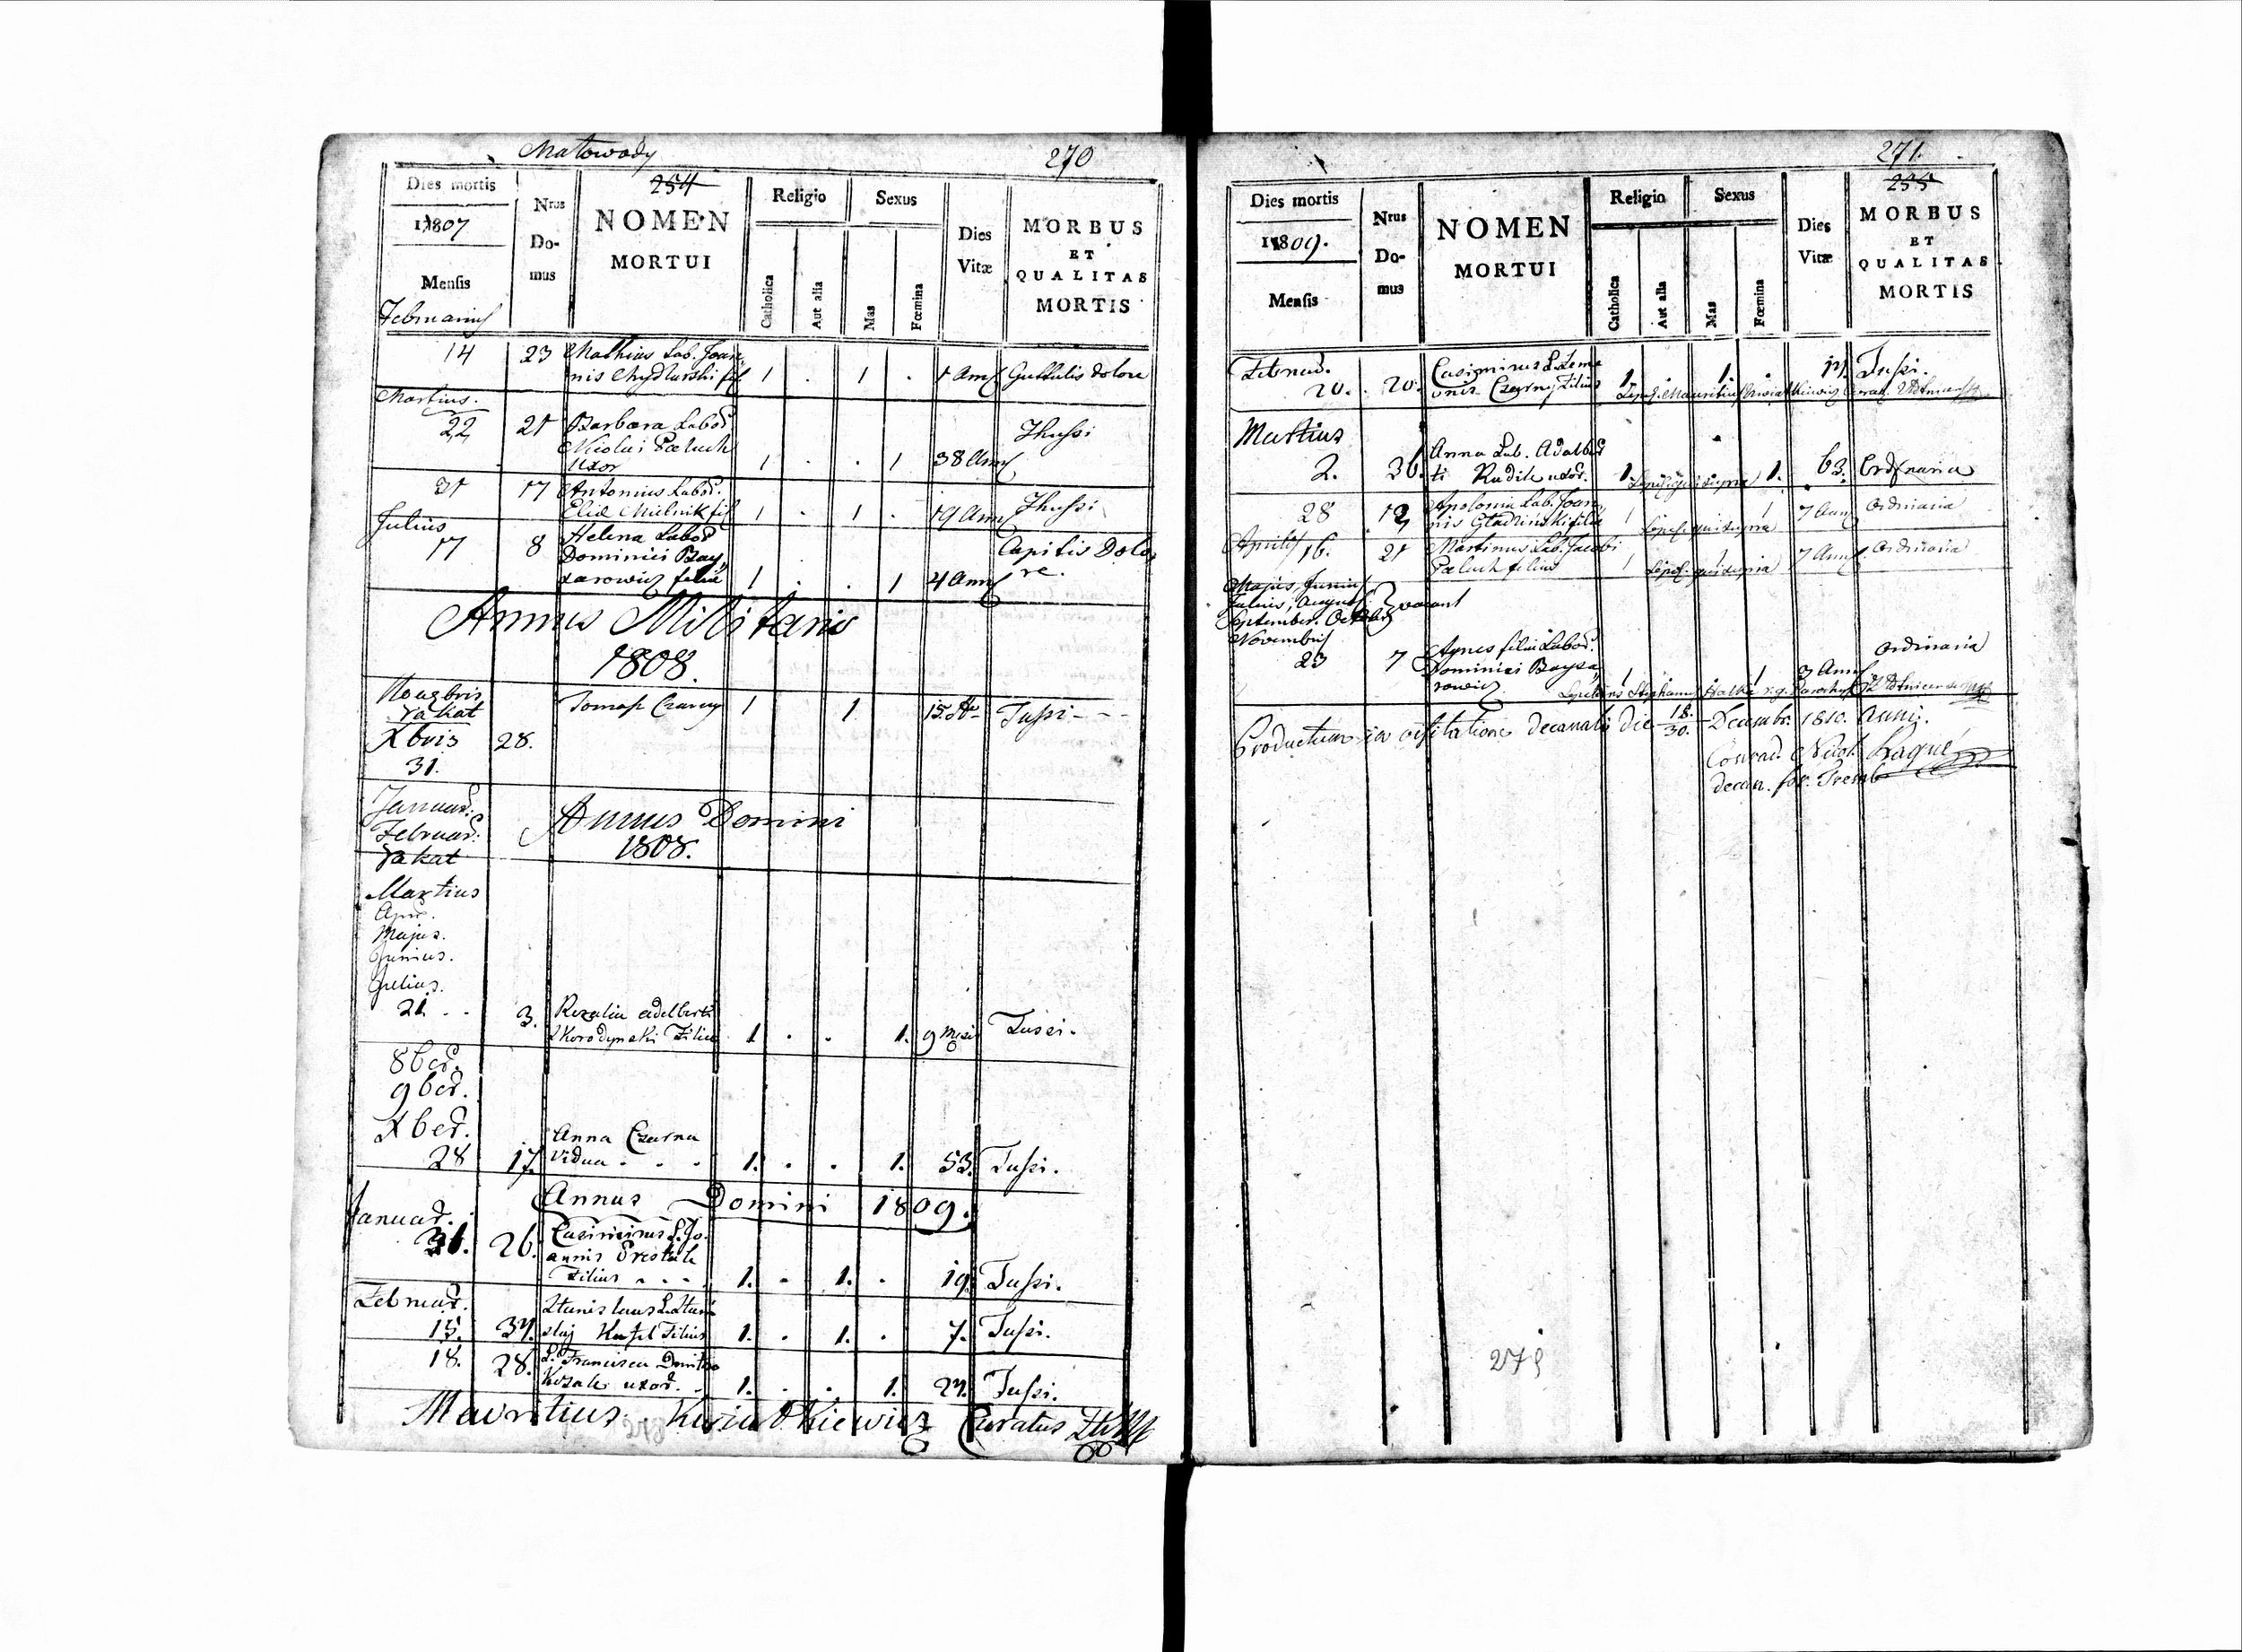 Matowody 270
254
Dies mortis
1807
Mensis
Nrus
Do-
mus
NOMEN
MORTUI
Religio
Sexus
Catholica
Aut alia
Mas
Fœmina
Dies
Vitæ
MORBUS
ET
QUALITAS
MORTIS
Februarius
14 23 Mathius Lab. Joan
nis fil 1 . 1 . 1 Anñ Gutturis dolore
Martius.
22 21 Barbara Labor
Nicolai Paluch Thussi
Uxor 1 . . 1 38 Anñ
31 17 Antonius Labor.
Elie Mielnik fil 1 . 1 . 19 Anñ Thussi
Julius
17 8 Helena Labor Capitis Dolo
Dominici Bay
zarowicz filia 1 . . 1 4 Anñ re.
Annus Militaris
1808.
Novembris
Vakat Tomasz Czarny 1 1 15 Tussi - - -
Xbris 28.
31.
Januar.
Februar. Annus Domini
Vakat 1808.
Martius
Apr.
Majus.
Junius.
Julius.
21. . . 3. Rozalia Adelberti
Skorodynski Filia 1 . . 1. 9 Tussi.
8ber.
9ber.
Xber. Anna Czarna
28 17. Vidua . . . 1. . . 1. 53. Tussi.
Annus Domini 1809.
Januar.
31. 26. Casimirus L. Jo-
annis
Filius . . . 1. . 1. . 19. Tussi.
Februar. Stanislaus L. Stani
15. 37. slaj Filius 1. . 1. . 7. Tussi.
18. 28. L. Francisca Dmitro
Kozak uxor. . 1. . . 1. 27. Tussi.
Mauritius Kwiatkiewicz Curatus
271.
255
Dies mortis
1809.
Mensis
Nrus
Do-
mus
NOMEN
MORTUI
Religio
Sexus
Catholica
Aut alia
Mas
Fœmina
Dies
Vitæ
MORBUS
ET
QUALITAS
MORTIS
Februar. Casimirus L. Seme
20. 20. onis Czarny Filius 1. . 1. . 17. Tussi.
Sepel. Mauritius Kwiatkiewicz
Martius
Anna Lab. Adalber
2. 36. ti Rudik uxor. 1. 1. 63. Ordinaria
Sepel. qui supra
28 12 Apolonia Lab. Joan
nis filia 1 1 7 Anñ Ordinaria
Sepel. qui supra
Aprilis 16. 21 Martinus Lab. Jacobi
Paluch filius 1 1 7 Anñ Ordinaria
Sepel. qui supra
Majus, Junius
Julius, August vacant
September. October
Novembris
23 7 Agnes filia Labor. Ordinaria
Dominici Bayza
rowicz 1 1 3 Anñ
Stephanus
Productum in visitatione Decanali Die 18./30. Decembr. 1810. Anni.
Conrad.
decan. for.
275